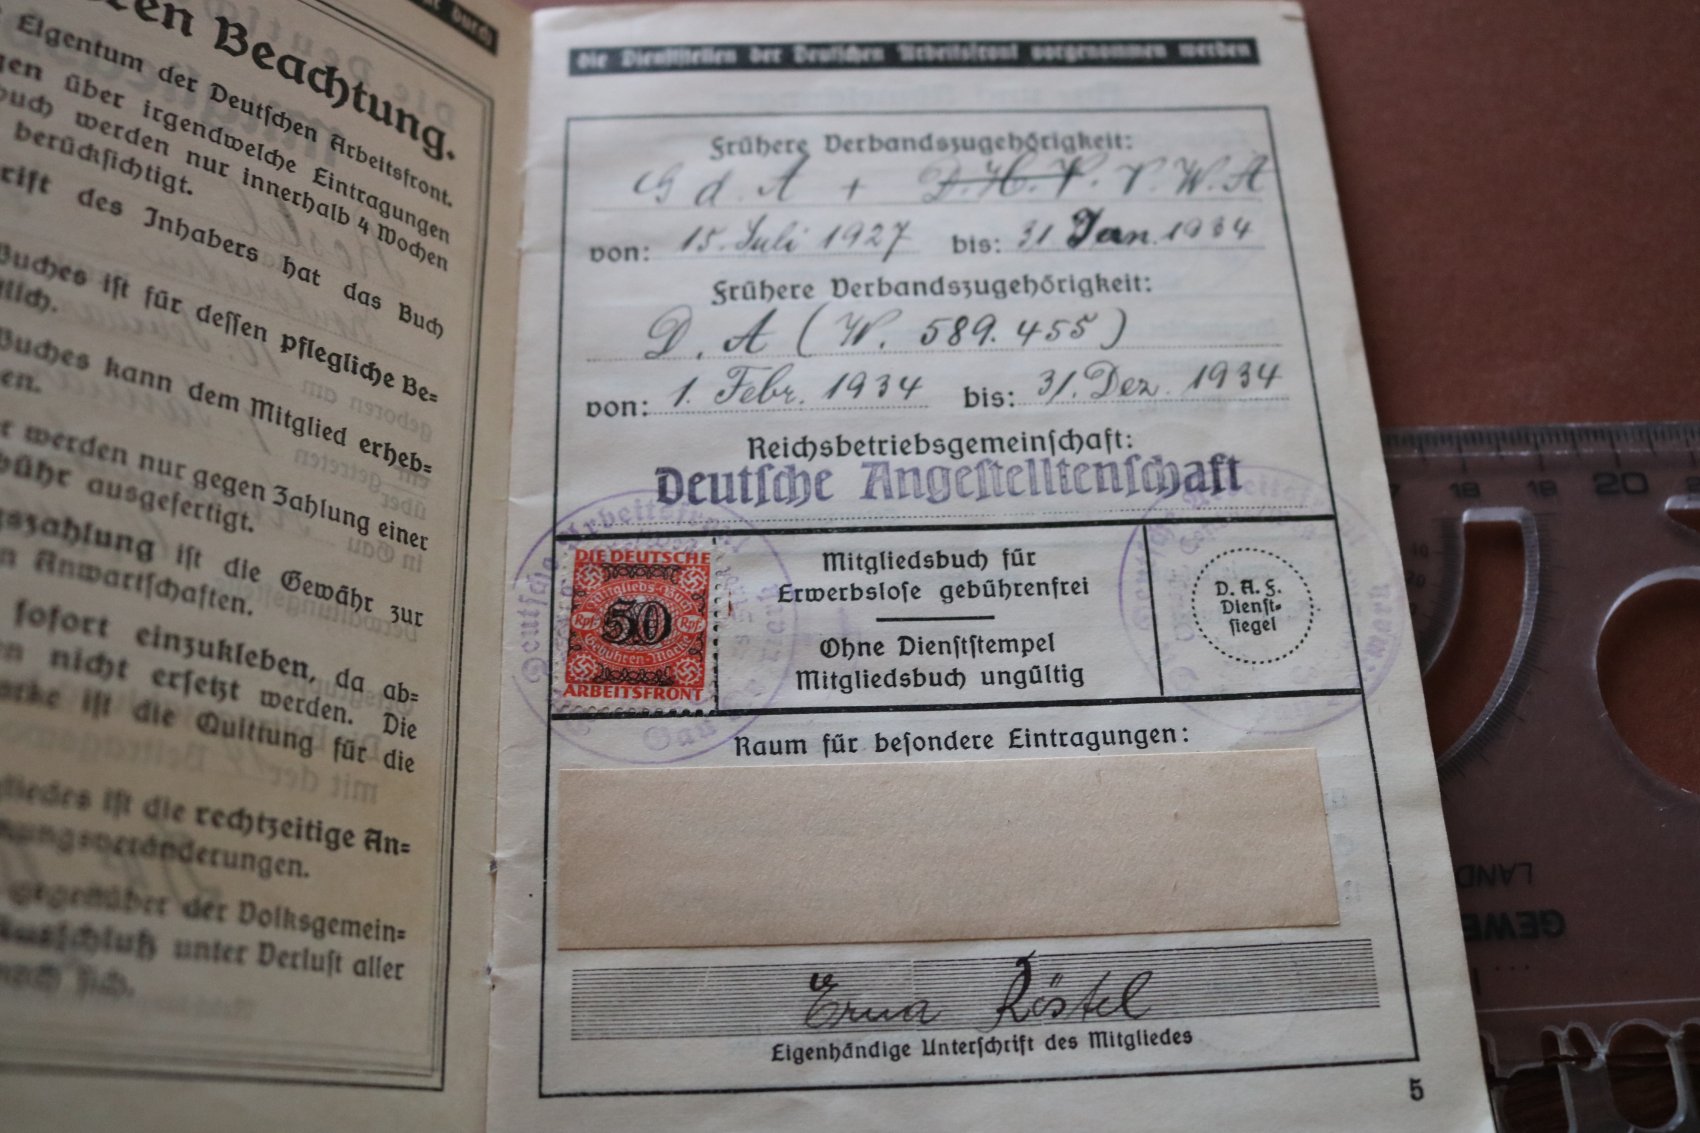 en Beachtung.
Eigentum der Deutschen Arbeitsfront.
über irgendwelche Eintragungen
buch werden nur innerhalb 4 Wochen
berücksichtigt.
des Inhabers hat das Buch
Buches ist für dessen pflegliche Be-
lich.
Buches kann dem Mitglied erheb-
en.
werden nur gegen Zahlung einer
bühr ausgefertigt.
gszahlung ist die Gewähr zur
n Anwartschaften.
sofort einzukleben, da ab-
en nicht ersetzt werden. Die
arke ist die Quittung für die
gliedes ist die rechtzeitige An-
nungsveränderungen.
gegenüber der Volksgemein-
Ausschluß unter Verlust aller
nach sich.
die Dienststellen der Deutschen Arbeitsfront vorgenommen werden
Frühere Verbandszugehörigkeit:
G d. A + D.H.V. V.W.A
von: 15. Juli 1927 bis: 31 Jan. 1934
Frühere Verbandszugehörigkeit:
D. A (W. 589.455)
von: 1. Febr. 1934 bis: 31. Dez. 1934
Reichsbetriebsgemeinschaft:
Deutsche Angestelltenschaft
Deutsche Arbeitsfront
DIE DEUTSCHE
Mitglieds-Buch
Rpf. 50 Rpf.
Gebühren-Marke
ARBEITSFRONT
Mitgliedsbuch für
Erwerbslose gebührenfrei
Ohne Dienststempel
Mitgliedsbuch ungültig
D. A. F.
Dienst-
siegel
Raum für besondere Eintragungen:
Erna Röstel
Eigenhändige Unterschrift des Mitgliedes
5
18 19 20